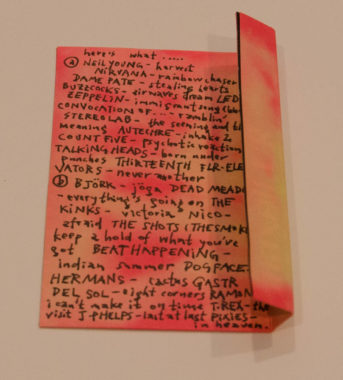 here's what .....
ⓐ NEIL YOUNG - harvest
NIRVANA - rainbow chaser
DAME PATE - stealing hearts
BUZZCOCKS - airwaves dream LED
ZEPPELIN - immigrant song
CONVOCATION OF.... - ramblin'
STEREOLAB - the seeming and the
meaning AUTECHRE - inhake 2
COUNT FIVE - psychotic reaction
TALKING HEADS - born under
punches THIRTEENTH FLR-ELE
VATORS - never another
ⓑ BJÖRK - jóga DEAD MEADO
- everything's going on THE
KINKS - victoria NICO -
afraid THE SHOTS (THE SMOKE)
keep a hold of what you've
got BEAT HAPPENING -
indian summer DOGFACE
HERMANS - cactus GASTR
DEL SOL - eight corners RAMON
i can't make it on time T. REX - the
visit J PHELPS - last at last PIXIES -
in heaven.